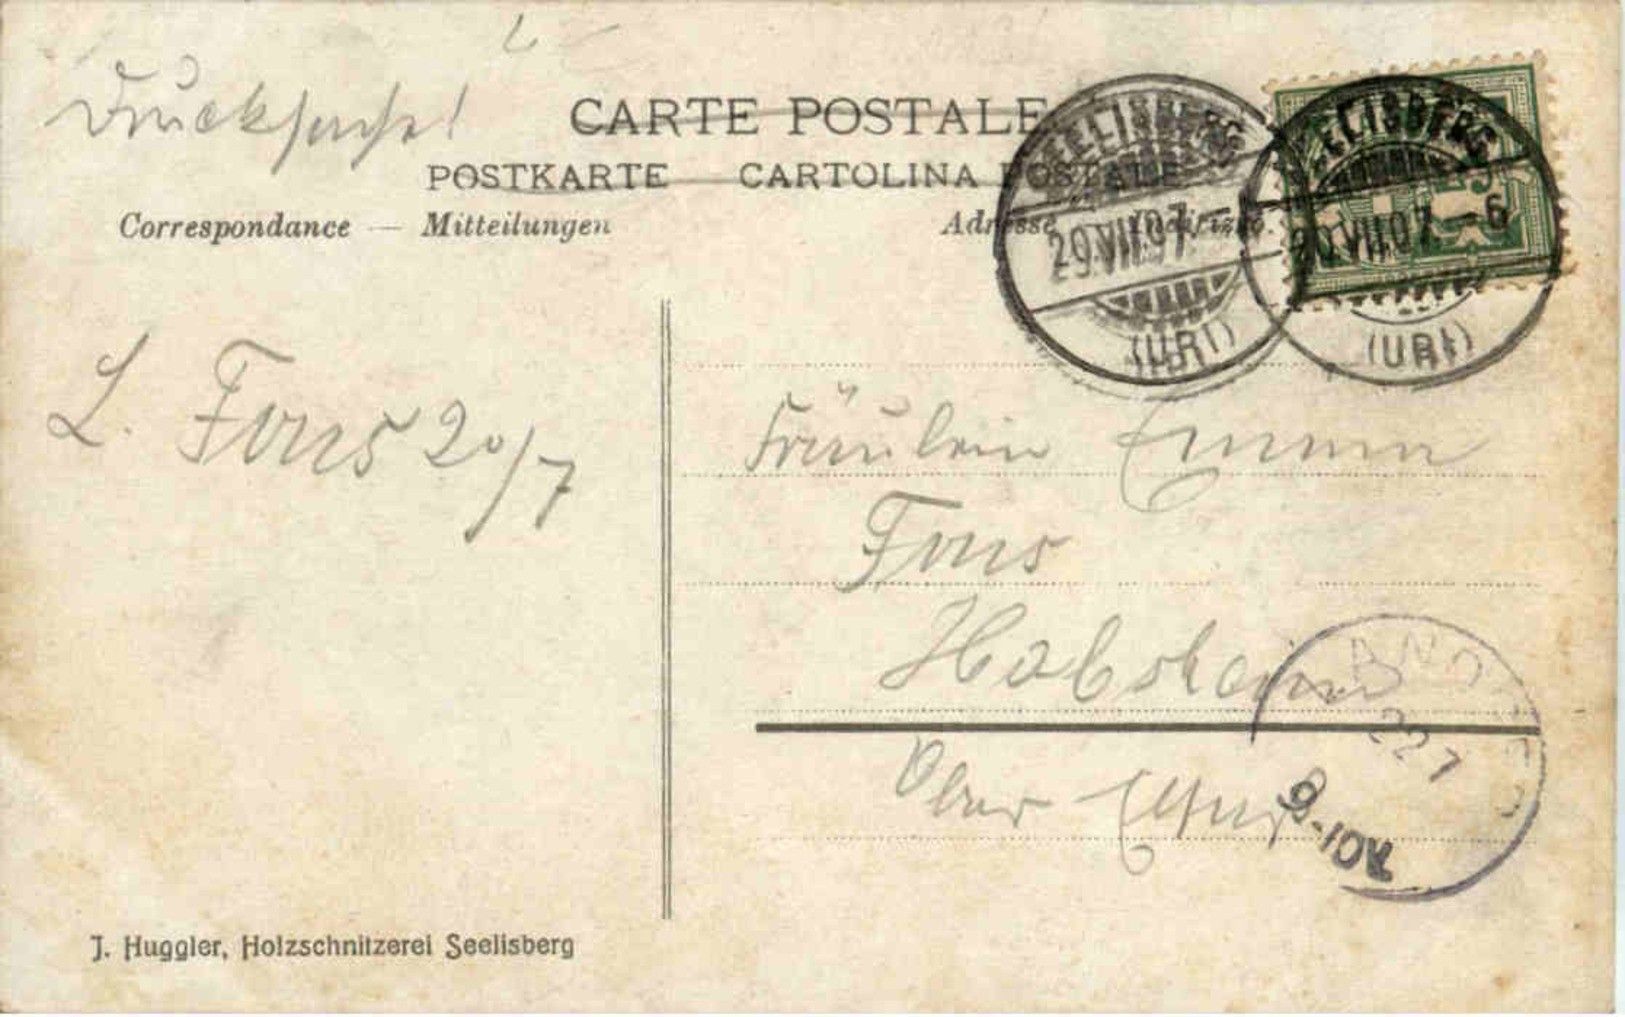 Drucksache!
CARTE POSTALE
POSTKARTE CARTOLINA POSTALE
Correspondance — Mitteilungen
Adresse Indirizzo.
SEELISBERG
20.VII.07
(URI)
SEELISBERG
20.VII.07.–6
(URI)
L. Fons 20/7
Fräulein Emma
Fons
Habsheim
Ober Elsass
22 7
9-10V
J. Huggler, Holzschnitzerei Seelisberg